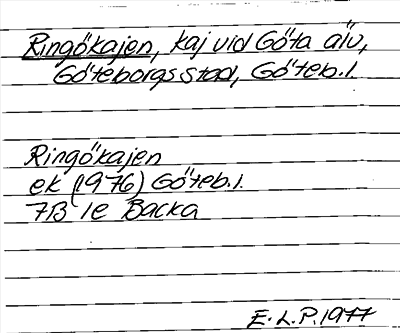 Ringökajen, kaj vid Göta älv,
Göteborgs stad, Göteb. l.
Ringökajen
ek (1976) Göteb. l.
7B 1e Backa
E. L. P. 1977